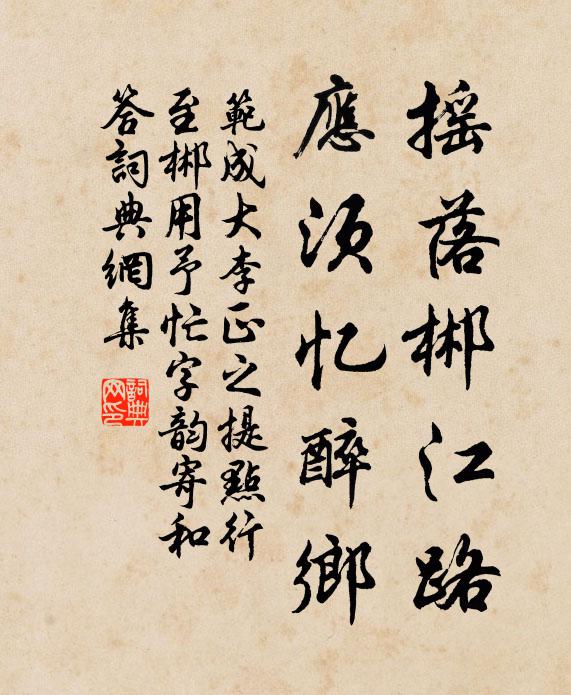 摇落郴江路
應須忆醉鄉
範成大李正之提點行
至郴用予忙字韵寄和
答詞典網集
詞典网印